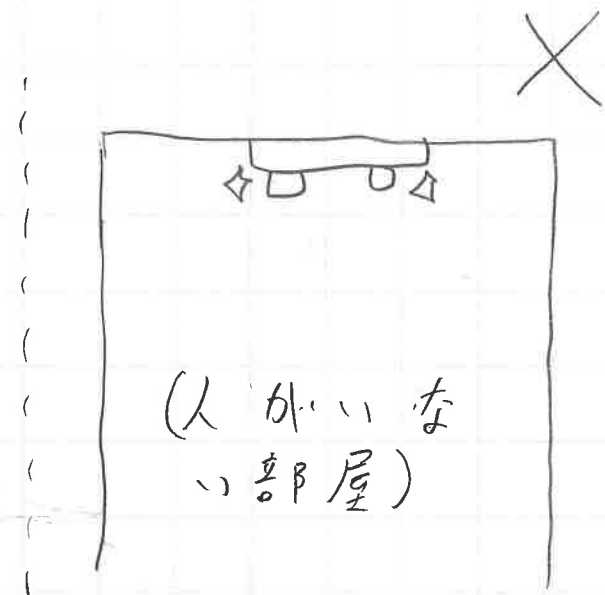 (人がいな
い部屋)